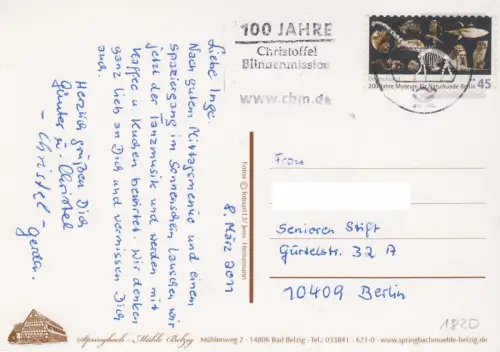 8. März 2011
Liebe Inge.
Nach gutem Mittagsmenue und einem
Spaziergang im Sonnenschein lauschen wir
jetzt der Tanzmusik und werden mit
Kaffee u. Kuchen bewirtet. Wir denken
ganz lieb an Dich und vermissen Dich
auch.
Herzlich grüßen Dich
Günter u. Christel
- Christel -
Gerda.
100 JAHRE
Christoffel
Blindenmission
www.cbm.de
200 Jahre Museum für Naturkunde Berlin
45
Fotos © fotoart13/ Jens Heinemann
Frau
Senioren Stift
Gürtelstr. 32 A
10409 Berlin
1820
Springbach - Mühle Belzig
Mühlenweg 2 - 14806 Bad Belzig - Tel.: 033841 - 621-0 - www.springbachmuehle-belzig.de